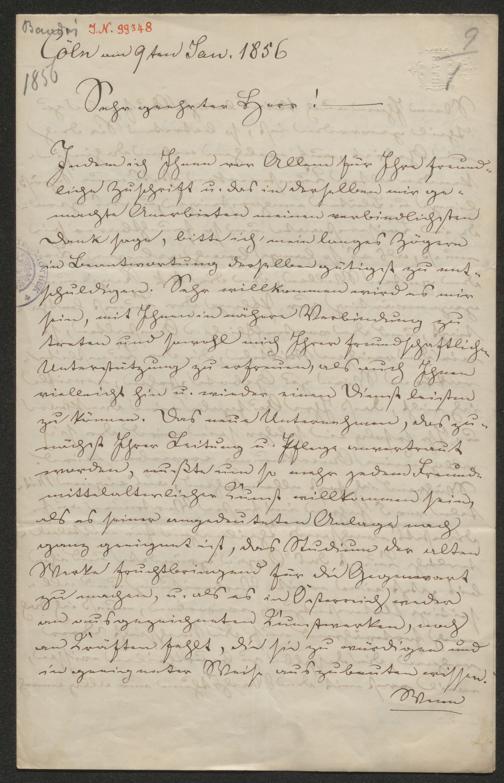 Baudri J.N. 99348
Cöln am 9ten Jan. 1856
1856
9
1
Sehr geehrter Herr!
Indem ich Ihnen vor Allem für Ihre freund-
liche Zuschrift u. das in derselben mir ge-
machte Anerbieten meinen verbindlichsten
Dank sage, bitte ich mein langes Zögern
in Beantwortung derselben gütigst zu ent-
schuldigen. Sehr willkommen wird es mir
sein, mit Ihnen in nähere Verbindung zu
treten und sowohl mich Ihrer freundschaftlichen
Unterstützung zu erfreuen, als auch Ihnen
vielleicht hin u. wieder einen Dienst leisten
zu können. Das neue Unternehmen, das zu-
nächst Ihrer Leitung u. Pflege anvertraut
worden, mußte um so mehr jedem Freund
mittelalterlicher Kunst willkommen sein,
als es seiner angedeuteten Anlage nach
ganz geeignet ist, das Studium der alten
Werke fruchtbringend für die Gegenwart
zu machen, u. als es in Oesterreich weder
an ausgezeichneten Kunstwerken, noch
an Kräften fehlt, die sie zu würdigen und
in geeigneter Weise auszubeuten wissen.
Wenn